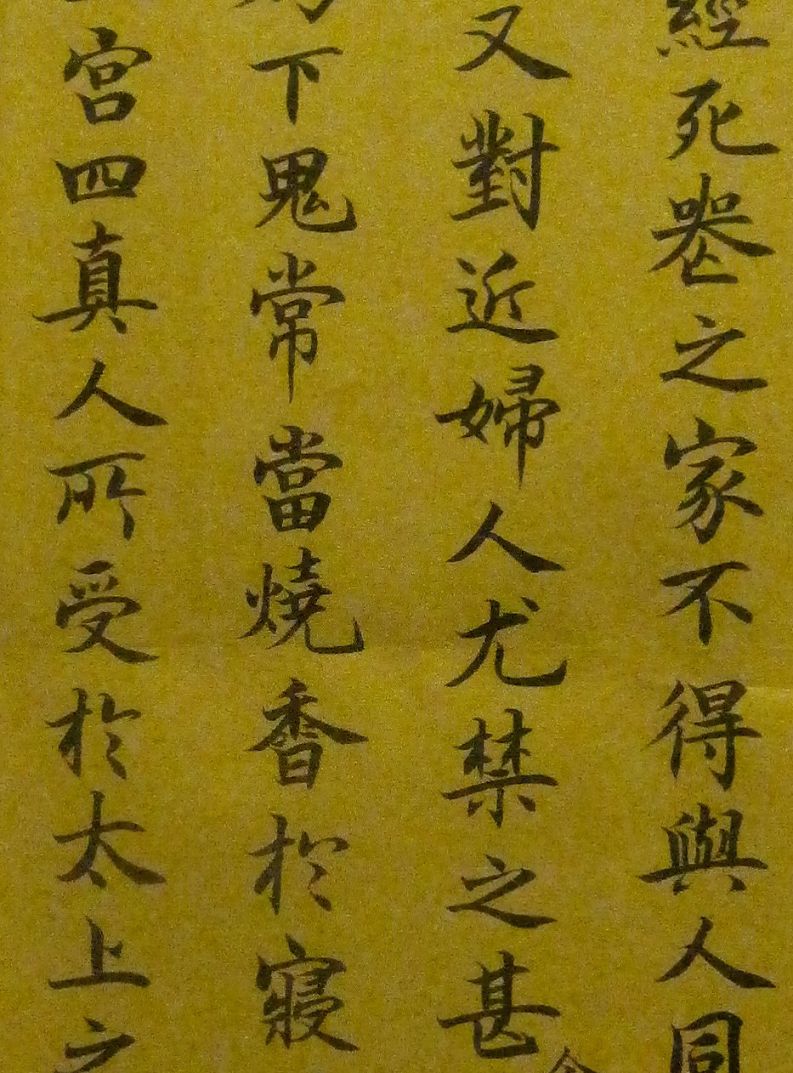 經死喪之家不得與人同
又對近婦人尤禁之甚
下鬼常當燒香於寢
宮四真人所受於太上之